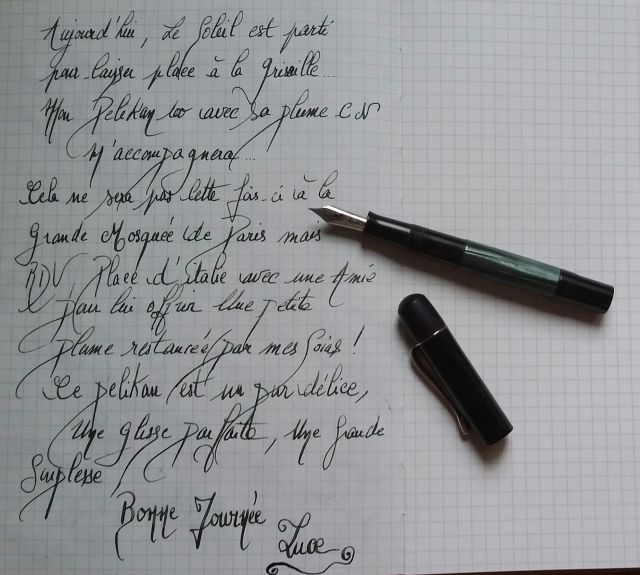 Aujourd'hui, Le Soleil est parti
pour laisser place à la grisaille...
Mon Pelikan 100 avec sa plume CN
M'accompagnera...
Cela ne sera pas cette fois-ci à la
Grande Mosquée de Paris mais
RDV Place d'italie avec une Amie
pour lui offrir Une petite
plume restaurée par mes Soins !
Ce pelikan est un pur délice,
Une glisse parfaite, Une grande
Souplesse
Bonne Journée
Luce